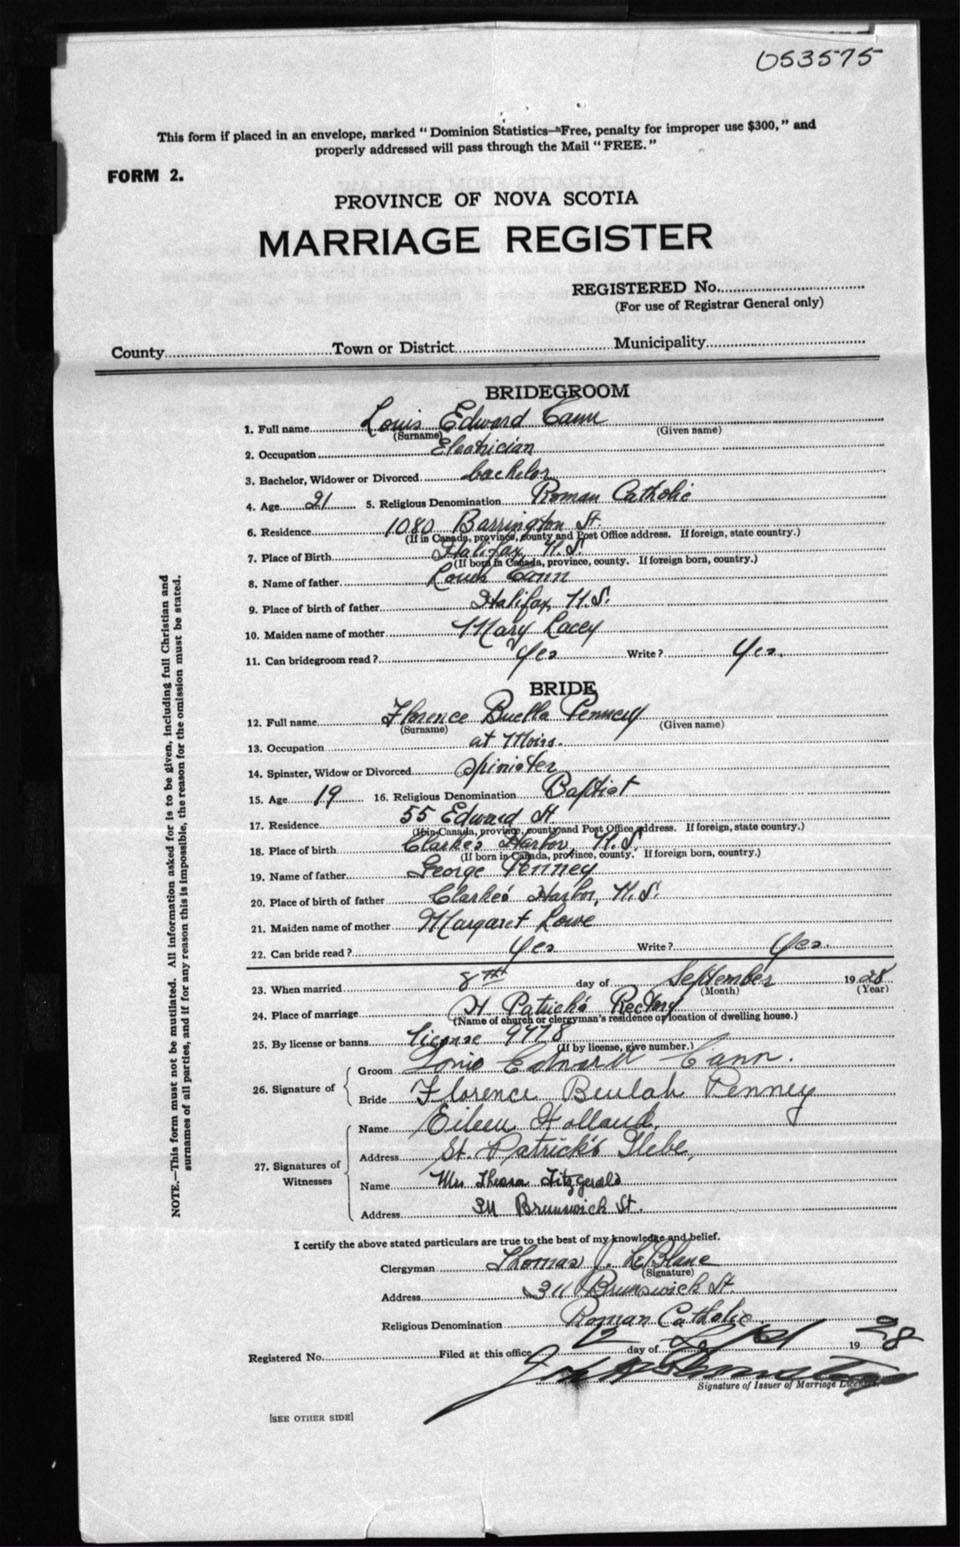 053575
This form if placed in an envelope, marked "Dominion Statistics—Free, penalty for improper use $300," and
properly addressed will pass through the Mail "FREE."
FORM 2.
PROVINCE OF NOVA SCOTIA
MARRIAGE REGISTER
REGISTERED No.
(For use of Registrar General only)
County Town or District Municipality
BRIDEGROOM
1. Full name Louis Edward Cann
(Surname) (Given name)
2. Occupation Electrician
3. Bachelor, Widower or Divorced bachelor
4. Age 21 5. Religious Denomination Roman Catholic
6. Residence 1080 Barrington St.
(If in Canada, province, county and Post Office address. If foreign, state country.)
7. Place of Birth Halifax, N.S.
(If born in Canada, province, county. If foreign born, country.)
8. Name of father Louis Cann
9. Place of birth of father Halifax, N.S.
10. Maiden name of mother Mary Lacey
11. Can bridegroom read? Yes Write? Yes.
BRIDE
12. Full name Florence Buella Penney
(Surname) (Given name)
13. Occupation at Moirs.
14. Spinster, Widow or Divorced Spinister
15. Age 19 16. Religious Denomination Baptist
17. Residence 55 Edward St
(If in Canada, province, county and Post Office address. If foreign, state country.)
18. Place of birth Clarke's Harbor, N.S.
(If born in Canada, province, county. If foreign born, country.)
19. Name of father George Penney
20. Place of birth of father Clarke's Harbor, N.S.
21. Maiden name of mother Margaret Lowe
22. Can bride read? Yes Write? Yes.
23. When married 8th day of September 1928
(Month) (Year)
24. Place of marriage St Patrick's Rectory
(Name of church or clergyman's residence or location of dwelling house.)
25. By license or banns license 9778
(If by license, give number.)
26. Signature of
Groom Louis Edward Cann.
Bride Florence Beulah Penney
27. Signatures of Witnesses
Name Eileen Holland,
Address St. Patrick's Glebe,
Name Mrs Fitzgerald
Address 311 Brunswick St.
I certify the above stated particulars are true to the best of my knowledge and belief.
Clergyman Thomas J. LeBlanc
(Signature)
Address 311 Brunswick St.
Religious Denomination Roman Catholic
Registered No. Filed at this office 12 day of Sept 1928
Signature of Issuer of Marriage License.
[SEE OTHER SIDE]
NOTE.—This form must not be mutilated. All information asked for is to be given, including full Christian and
surnames of all parties, and if for any reason this is impossible, the reason for the omission must be stated.